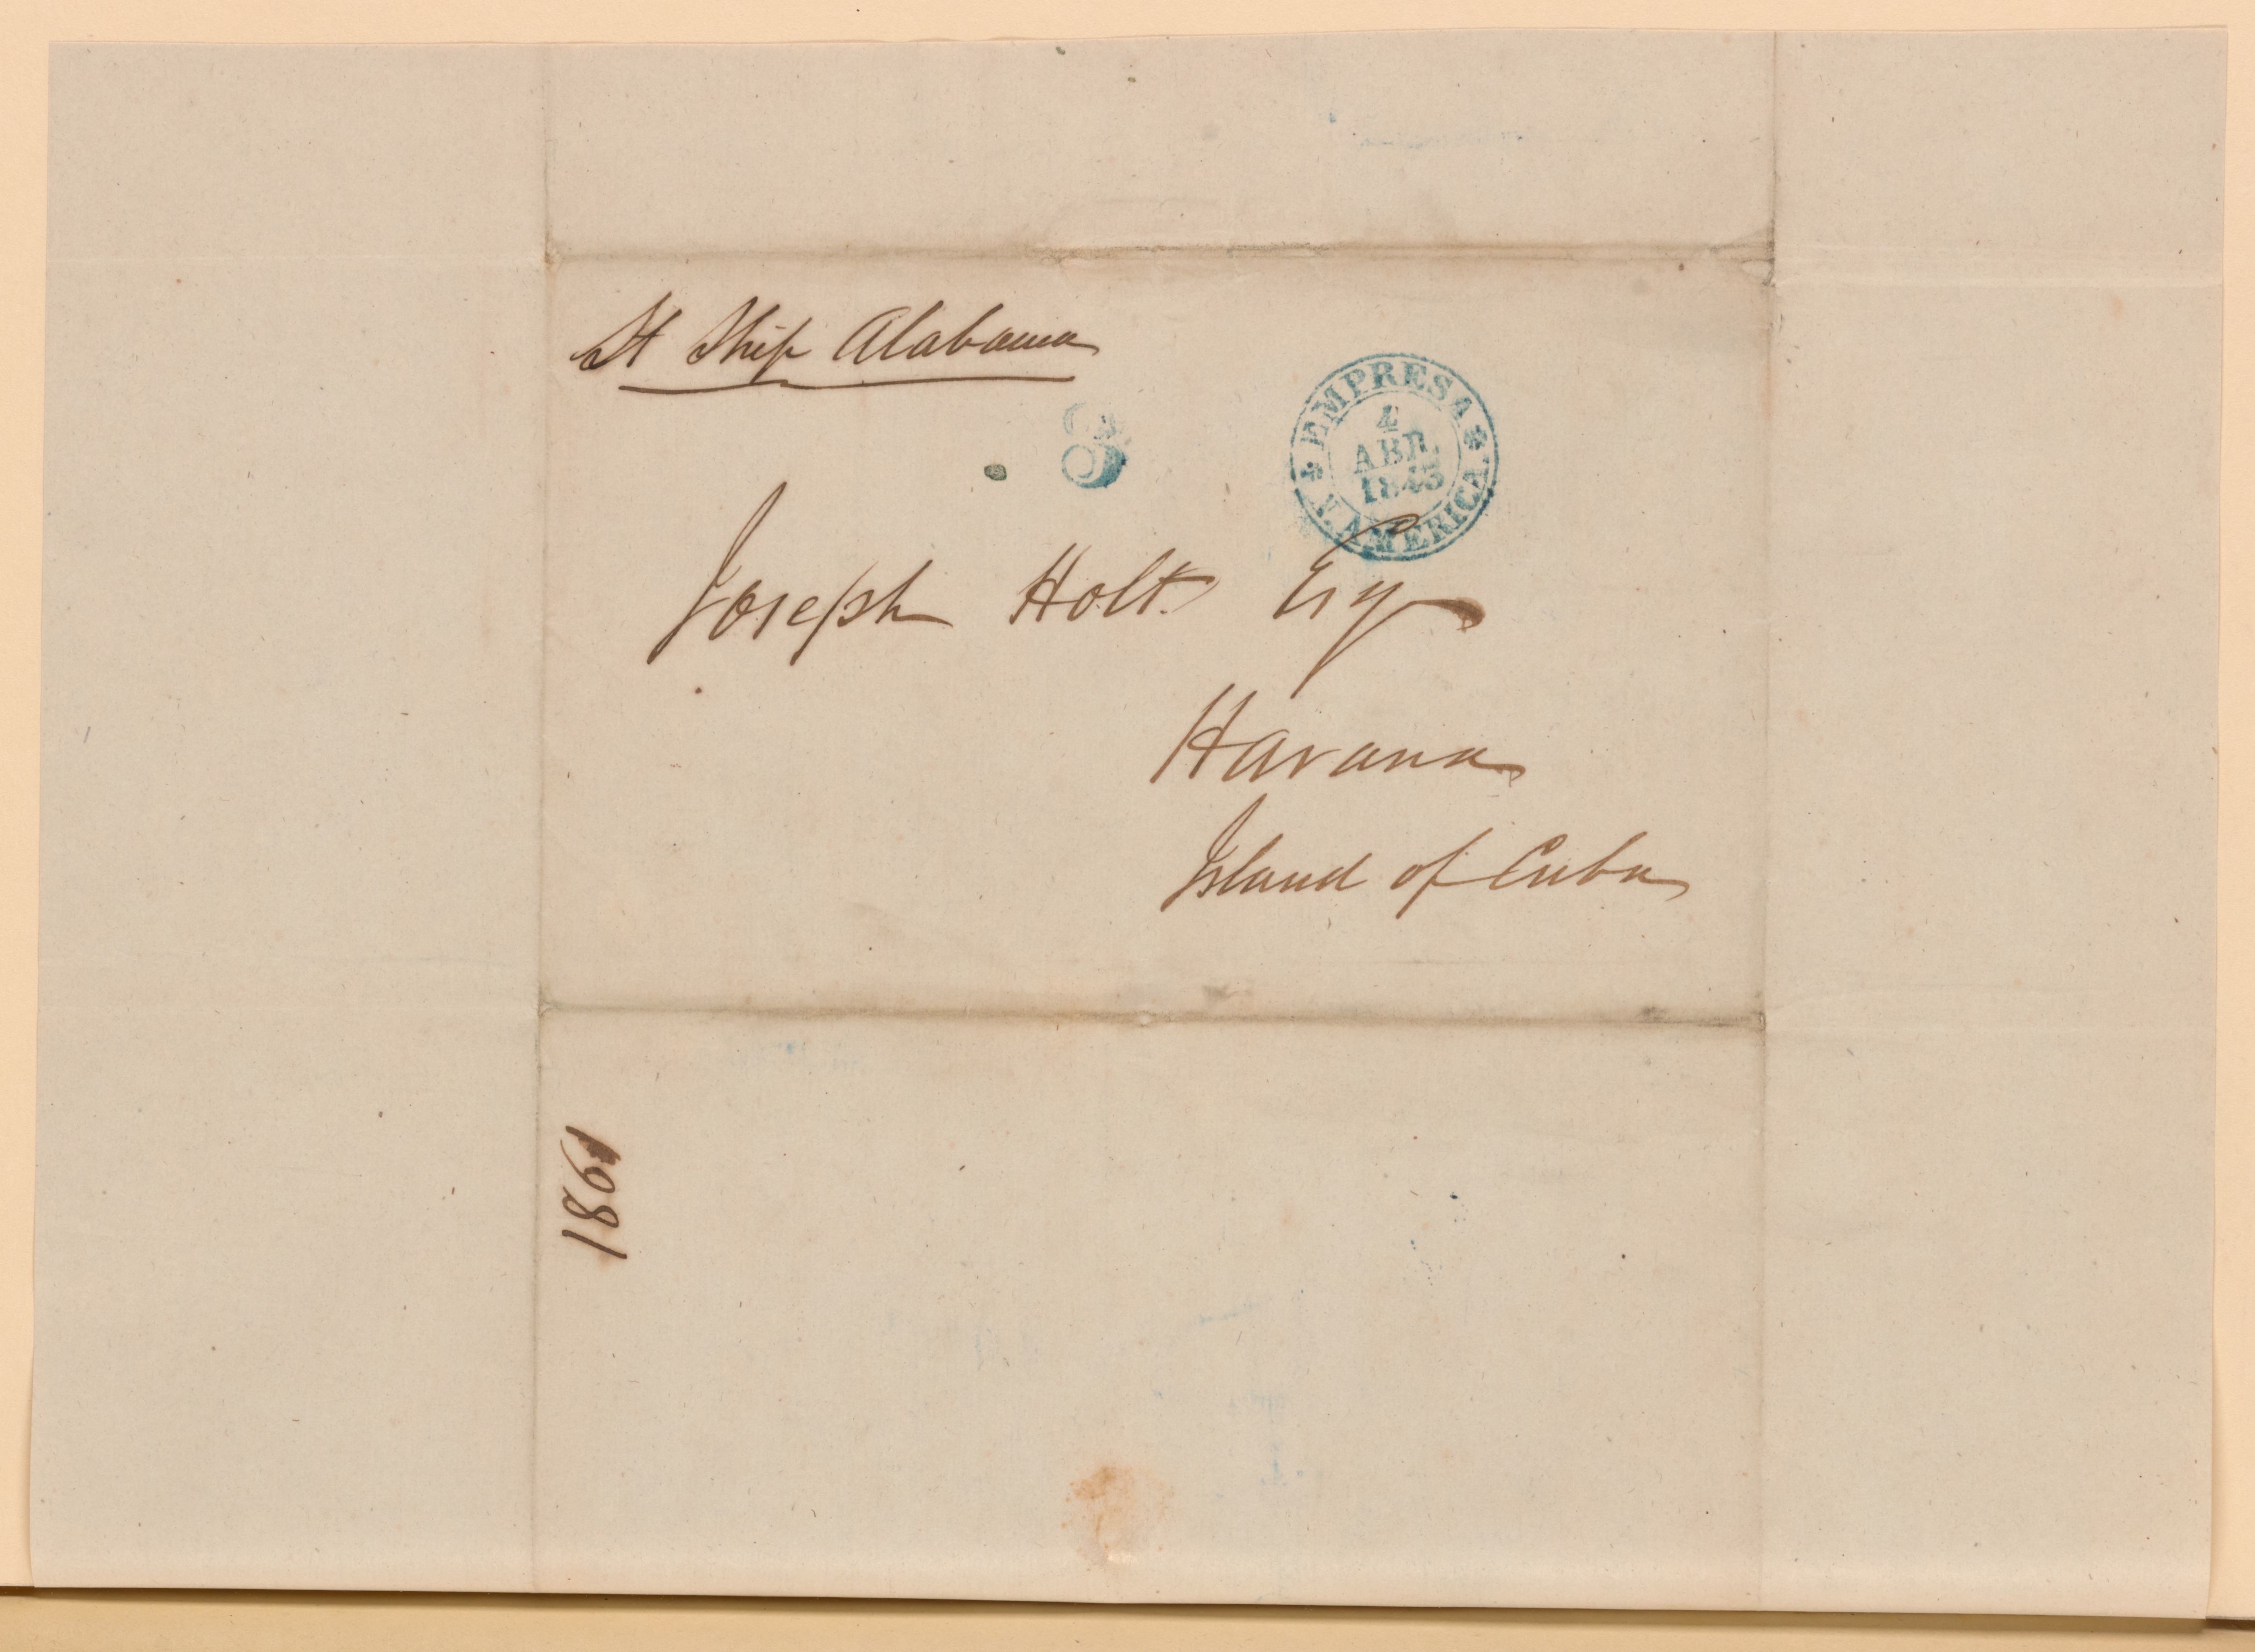 St Ship Alabama
3
EMPRESA
4
ABR.
1843
N. AMERICA.
Joseph Holt Esq
Havana
Island of Cuba
1861